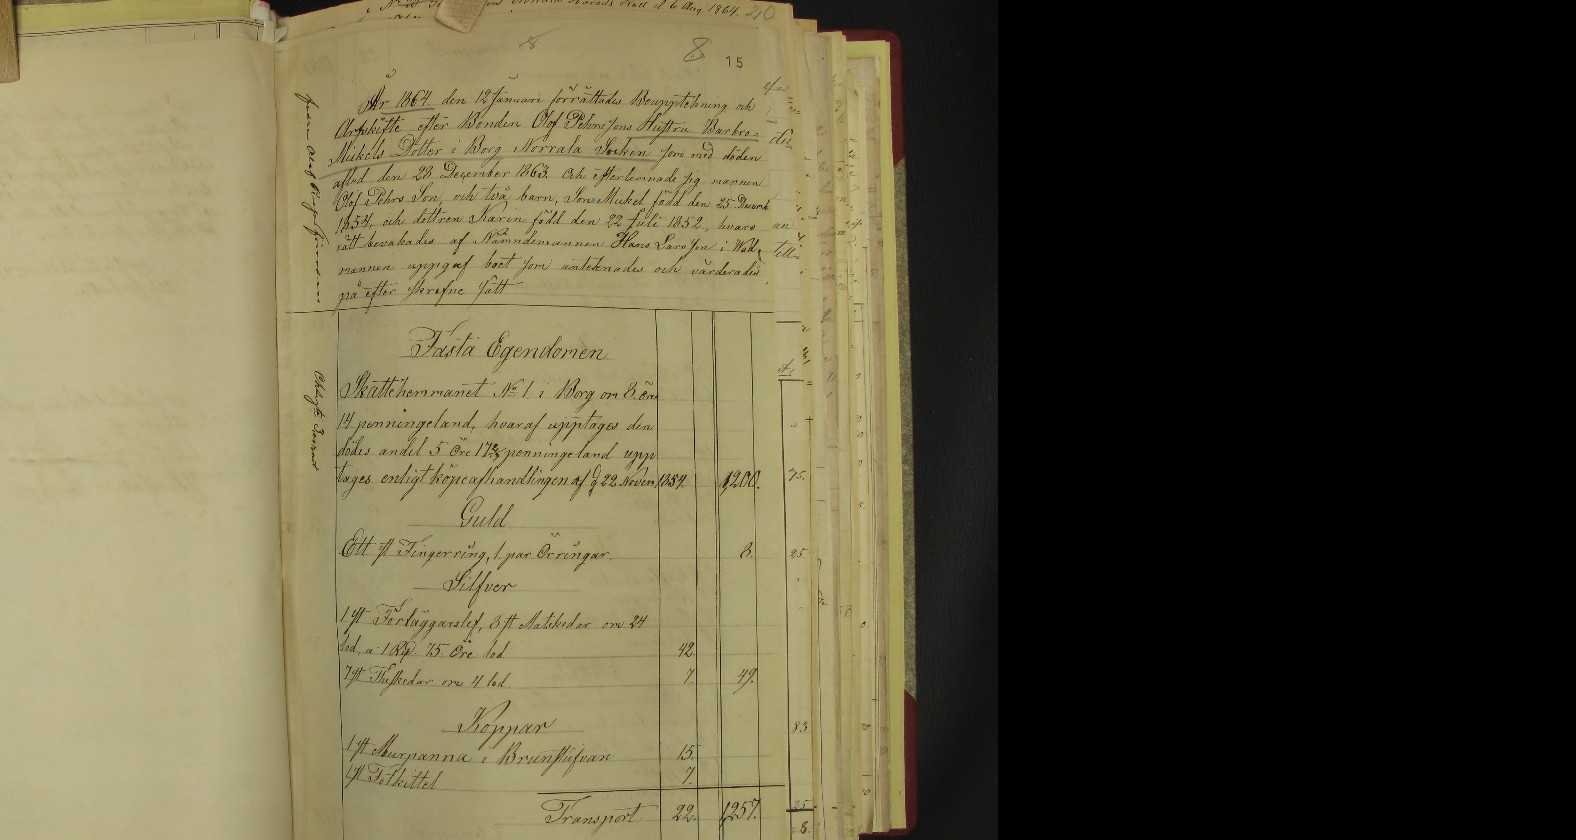 Häll d 6 Aug 1864. 210
8
8 15
År 1864 den 12 Januari förrättades Bouppteckning och
Arfskifte efter Bonden Olof Pehrssons Hustru Barbro
Mickels Dotter i Borg Norrala Socken som med döden
afled den 28 December 1863. Och efterlemnade sig mannen
Olof Pehrs Son, och två barn, Son Mickel född den 25 Decemb
1854, och dottren Karin född den 22 Juli 1852, hvars
rätt bevakades af Nämndemannen Hans Larsson i
mannen uppgaf boet som antecknades och värderades
på efter skrefne sätt
Fasta Egendomen
Skattehemmanet No 1 i Borg om 8 öre
14 penningeland, hvaraf upptages den
dödes andel 5 öre 17 penningeland upp
tages enligt köpeafhandlingen af d 22 Novem 1854. 1200.
Guld
Ett st Fingerring, 1 par Örringar. 8.
Silfver
1 st Förläggarslef, 3 st Matskedar om 24
lod, a 1 Rd 75 Öre lod 42.
7 st Theskedar om 4 lod. 7. 49.
Koppar
1 st Murpanna i Brunstufvan 15.
1 st Fotkittel 7.
Transport 22. 1257.